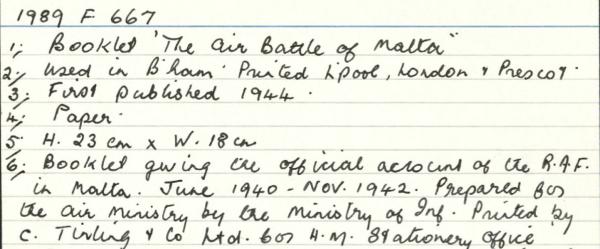 1989 F 667
1; Booklet 'The Air Battle of Malta"
2; Used in B'ham. Printed L'pool, London & Prescot.
3; First published 1944.
4; Paper.
5; H. 23 cm x W. 18 cm
6; Booklet giving the official account of the R.A.F.
in Malta. June 1940 - Nov. 1942. Prepared for
the Air Ministry by the Ministry of Inf. Printed by
C. Tinling & Co Ltd. for H.M. Stationery Office